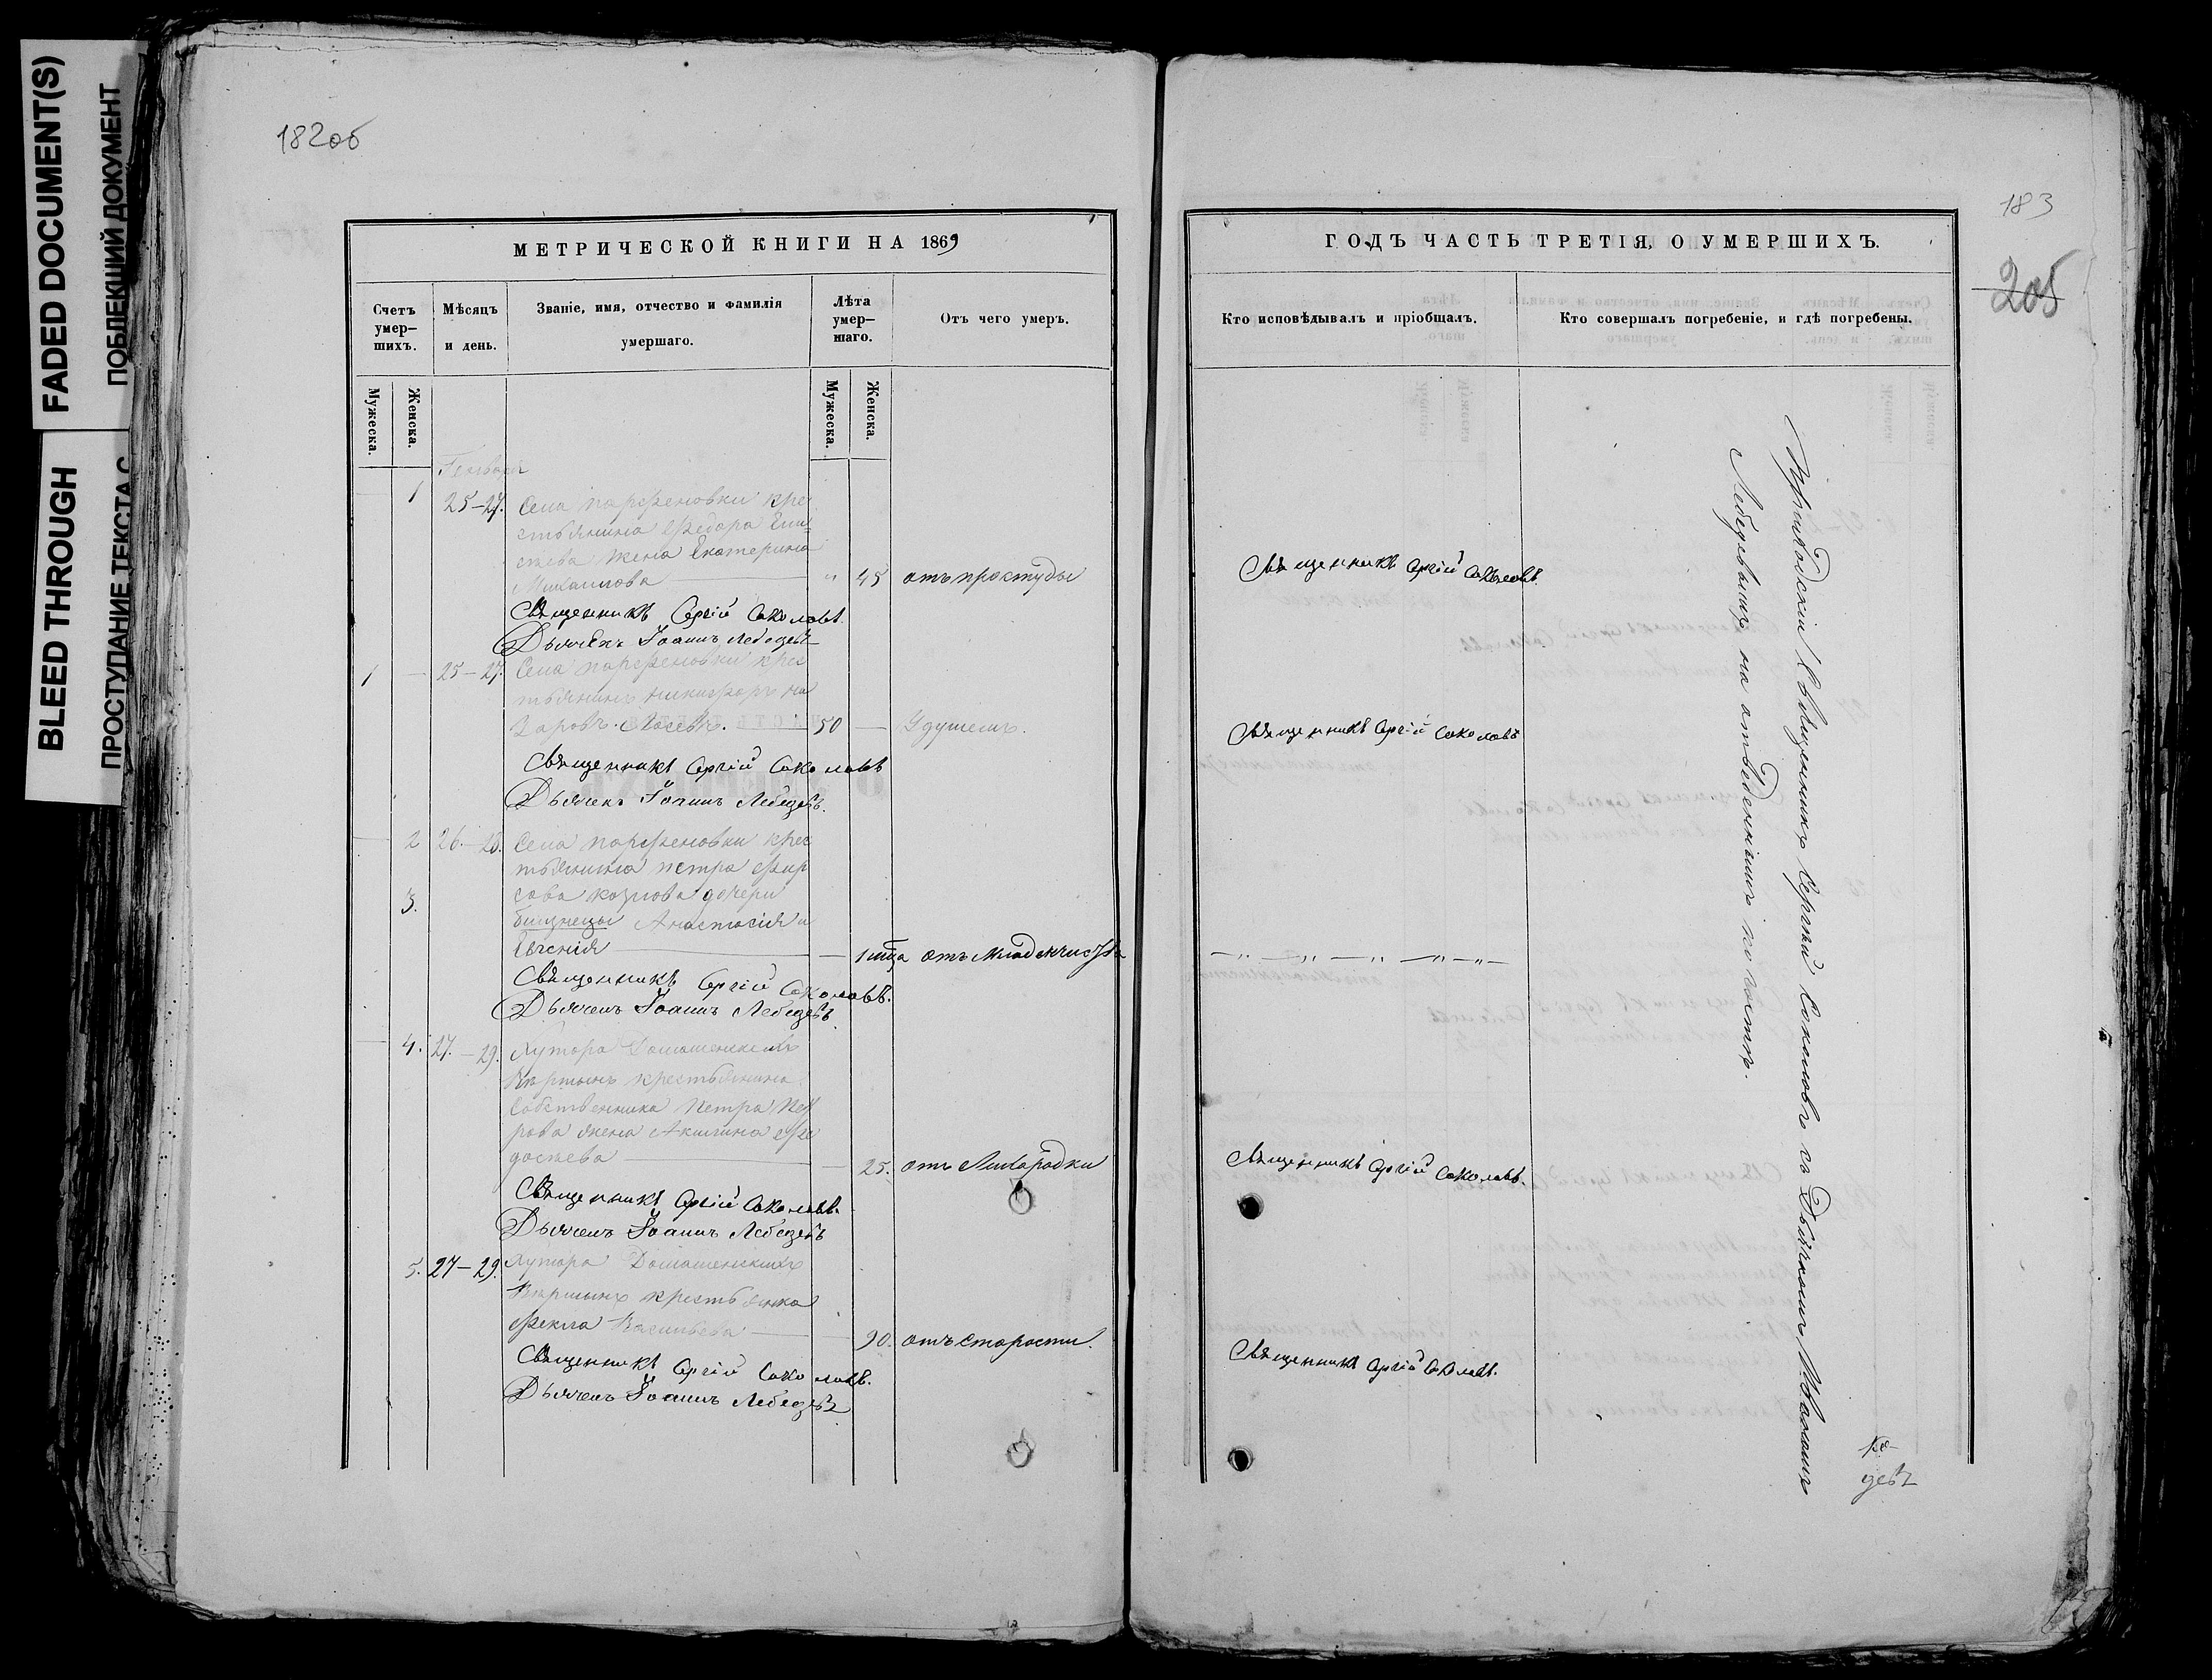 FADED DOCUMENT(S)
ПОБЛЕКШИЙ ДОКУМЕНТ
BLEED THROUGH
ПРОСТУПАНИЕ ТЕКСТА С
182об
МЕТРИЧЕСКОЙ КНИГИ НА 1869
Счетъ умер-шихъ.
Мѣсяцъ и день.
Званіе, имя, отчество и фамилія умершаго.
Лѣта умер-шаго.
Отъ чего умеръ.
Мужеска.
Женска.
Мужеска.
Женска.
Генваря
1 25–27. Села Парфеновки кре
стьянина Федора Ели
жена Екатерина
Михаилова — " 45 отъ простуды
Священникъ Сергій Соколовъ.
Дьячекъ Іоаннъ Лебедевъ
1 — 25–27. Села Парфеновки крес
тьянинъ Никифоръ На
заровъ 50 — Удушьемъ.
Священникъ Сергій Соколовъ
Дьячекъ Іоаннъ Лебедевъ.
— 2 26–28. Села Парфеновки крес
тьянина Петра Фир
3. сова Козлова дочери
близнецы Анастасія и
Евгенія — — 1 отъ младенчества
Священникъ Сергій Соколовъ.
Дьячекъ Іоаннъ Лебедевъ
— 4. 27.–29. Хутора
крестьянина
собственника Петра Пет
рова жена Акилина Фе
— — 25. отъ Лихорадки
Священникъ Сергій Соколовъ.
Дьячекъ Іоаннъ Лебедевъ
5. 27–29. Хутора
крестьянка
Фекла Васильева — 90. отъ старости.
Священникъ Сергій Соколовъ.
Дьячекъ Іоаннъ Лебедевъ
183
205
ГОДЪ ЧАСТЬ ТРЕТІЯ, О УМЕРШИХЪ.
Кто исповѣдывалъ и пріобщалъ.
Кто совершалъ погребеніе, и гдѣ погребены.
Священникъ Сергій Соколовъ.
Священникъ Сергій Соколовъ
— " — " — " — " — " —
Священникъ Сергій Соколовъ.
Священникъ Сергій Соколовъ.
Приходскій Священникъ Сергій Соколовъ съ Дьячкомъ Іоанномъ
Лебедевымъ на отведенномъ погостѣ.
девъ